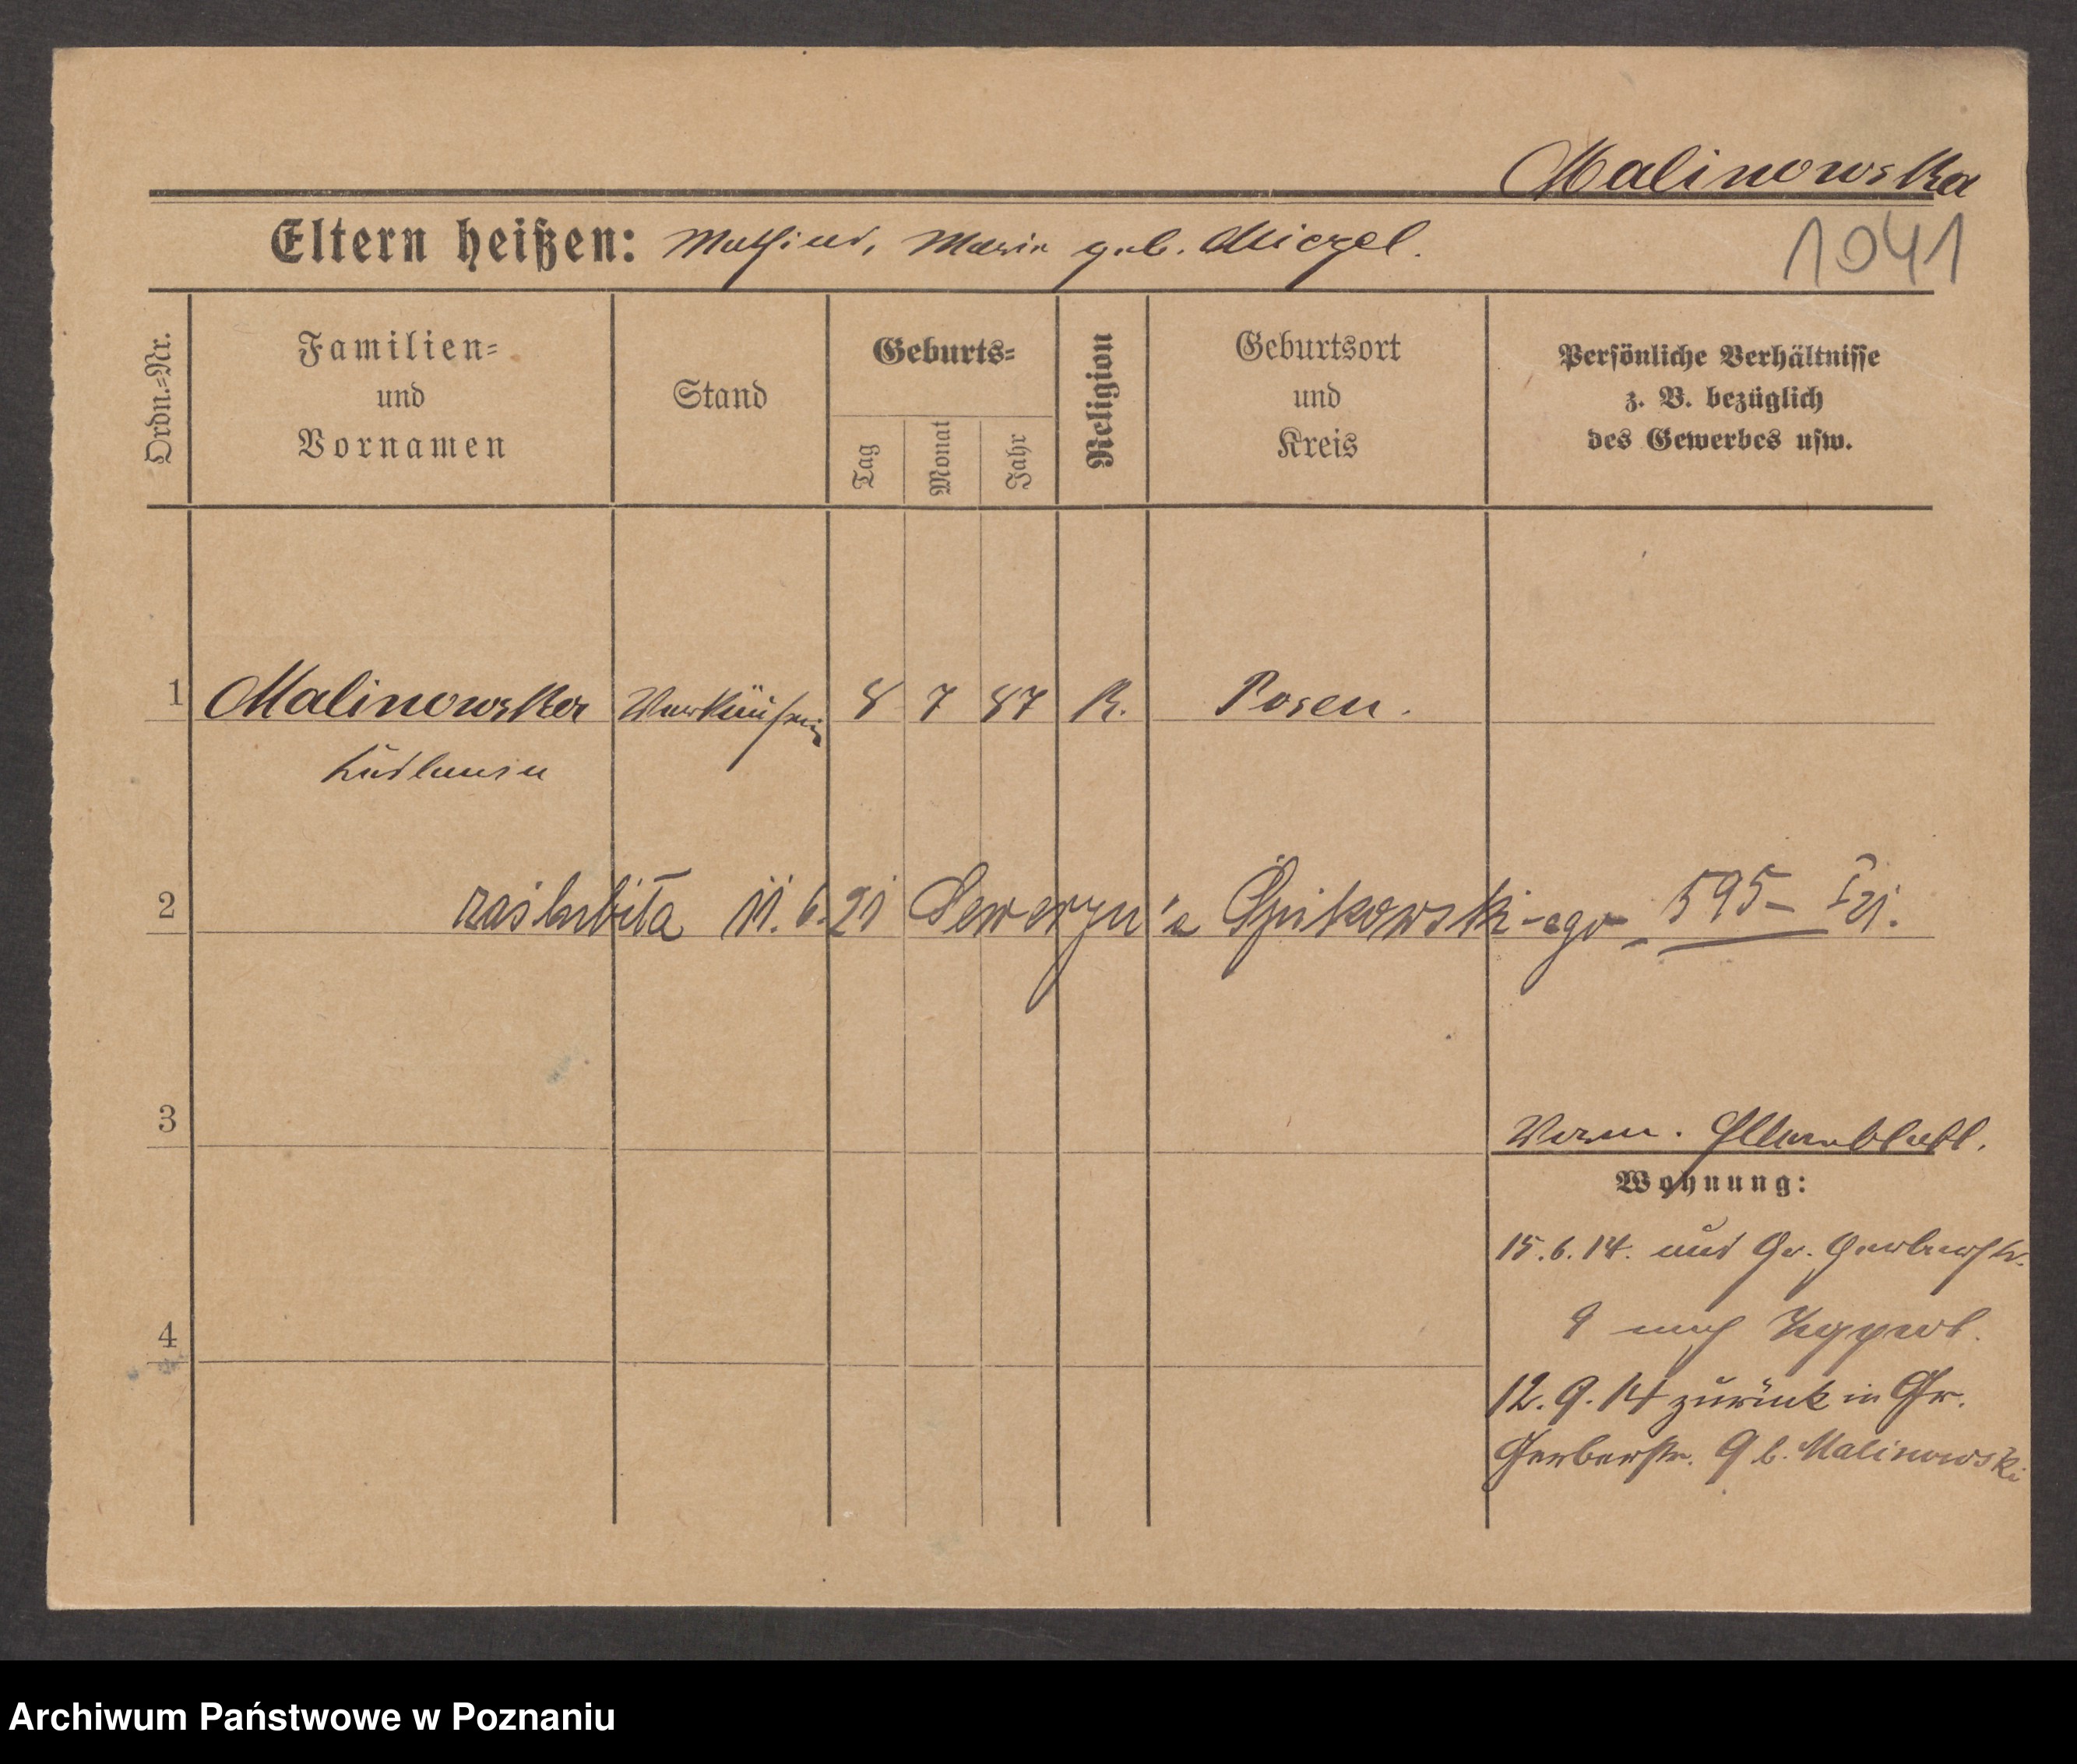 Malinowska
Eltern heißen: Mathias, Maria geb. Miczel.
1041
Ordn.=Nr.
Familien=
und
Vornamen
Stand
Geburts=
Tag
Monat
Jahr
Religion
Geburtsort
und
Kreis
Persönliche Verhältnisse
z. B. bezüglich
des Gewerbes usw.
1 Malinowska Verkäuferin 8 7 87 K. Posen.
Ludowika
2 zaślubiła 11. 6. 21 Seweryn'a Spikowski-ego 595 - I 21.
3
Vorm. Elternblatt.
Wohnung:
15.6.14. aus Gr. Gerberstr.
4
9 nach
12.9.14 zurück in Gr.
Gerberstr. 9 b. Malinowski
Archiwum Państwowe w Poznaniu